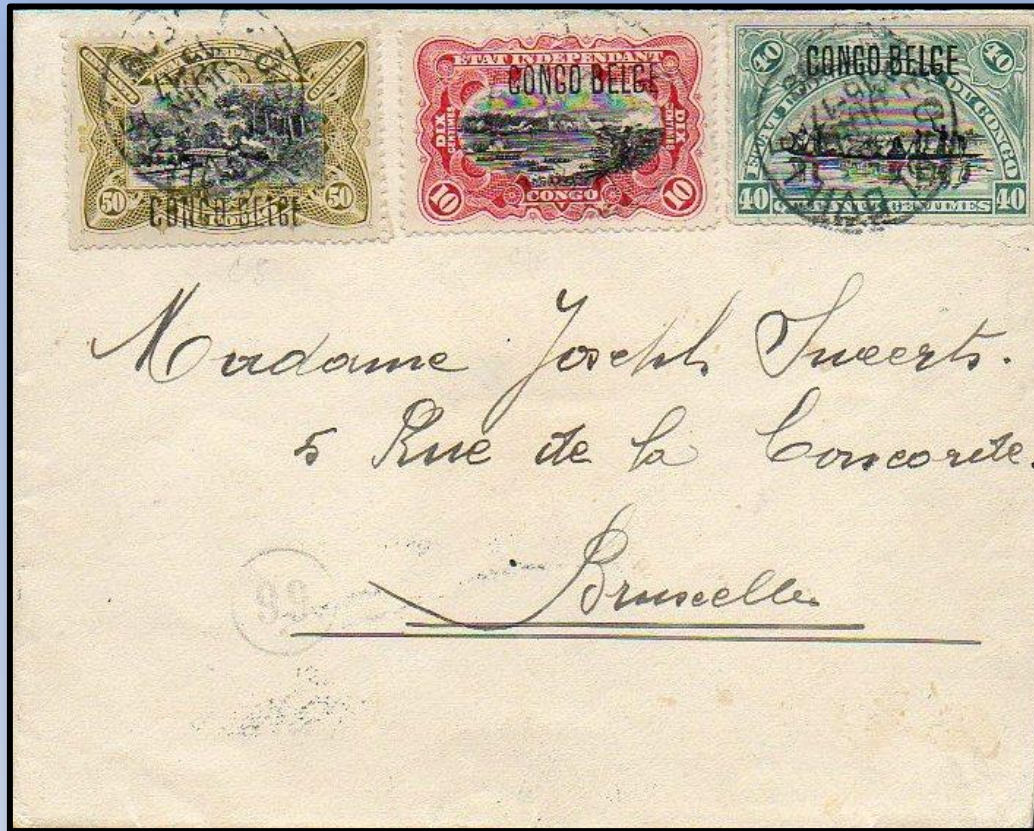 50 50
CONGO BELGE
ETAT INDEPENDANT
CONGO BELGE
DIX CENTIMES
DIX CENTIMES
10 CONGO 10
40 40
CONGO BELGE
DU CONGO
40 CENTIMES 40
Madame Joseph Sweerts.
5 Rue de la Concorde.
Bruxelles
99